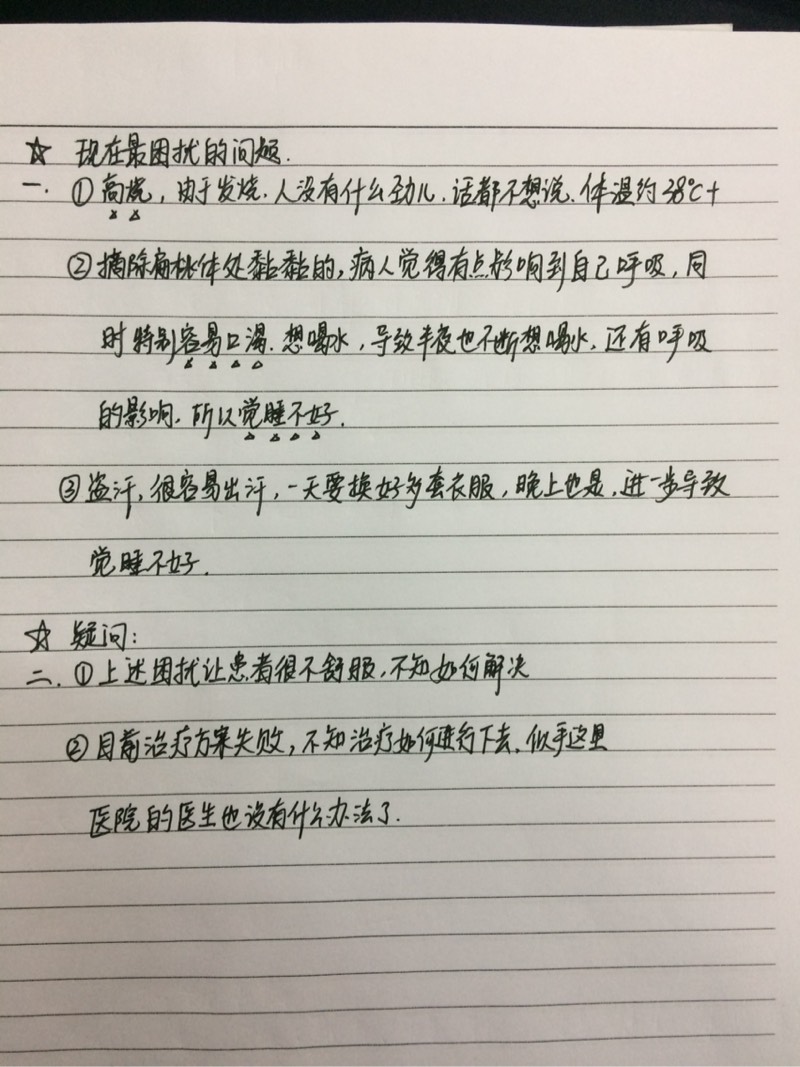 ☆ 现在最困扰的问题.
一. ① 高烧, 由于发烧. 人没有什么劲儿. 话都不想说. 体温约38℃+
② 摘除扁桃体处黏黏的, 病人觉得有点影响到自己呼吸, 同
时特别容易口渴. 想喝水, 导致半夜也不断想喝水, 还有呼吸
的影响. 所以觉睡不好.
③ 盗汗, 很容易出汗, 一天要换好多套衣服, 晚上也是, 进一步导致
觉睡不好.
☆ 疑问:
二. ① 上述困扰让患者很不舒服, 不知如何解决
② 目前治疗方案失败, 不知治疗如何进行下去. 似乎这里
医院的医生也没有什么办法了.